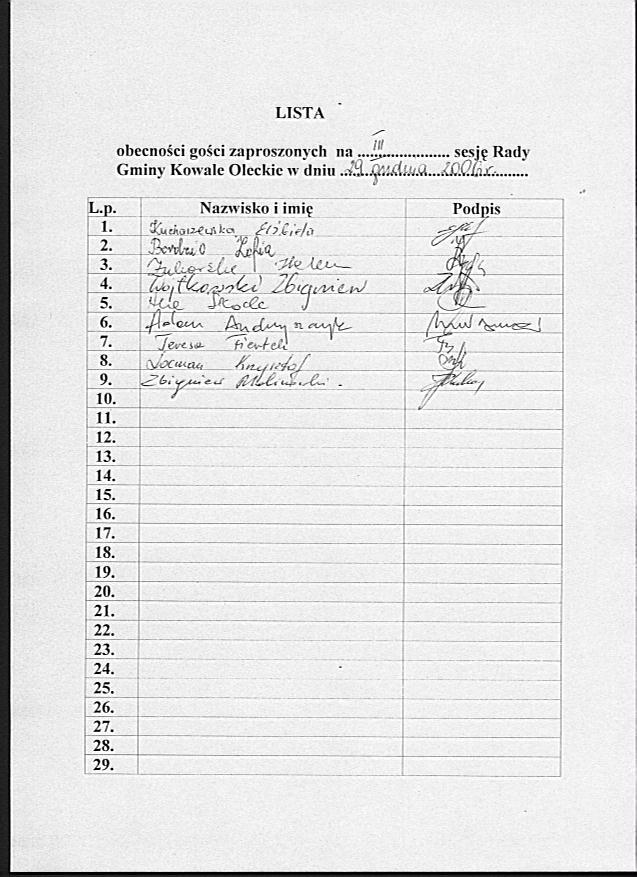 LISTA
obecności gości zaproszonych na ...III... sesję Rady
Gminy Kowale Oleckie w dniu ...29 grudnia 2006r...
L.p. Nazwisko i imię Podpis
1. Kucharzewska Elżbieta
2. Zofia
3. Helena
4. Wojtkowski Zbigniew
5.
6. Adam
7. Teresa
8. Locman Krzysztof
9. Zbigniew
10.
11.
12.
13.
14.
15.
16.
17.
18.
19.
20.
21.
22.
23.
24.
25.
26.
27.
28.
29.